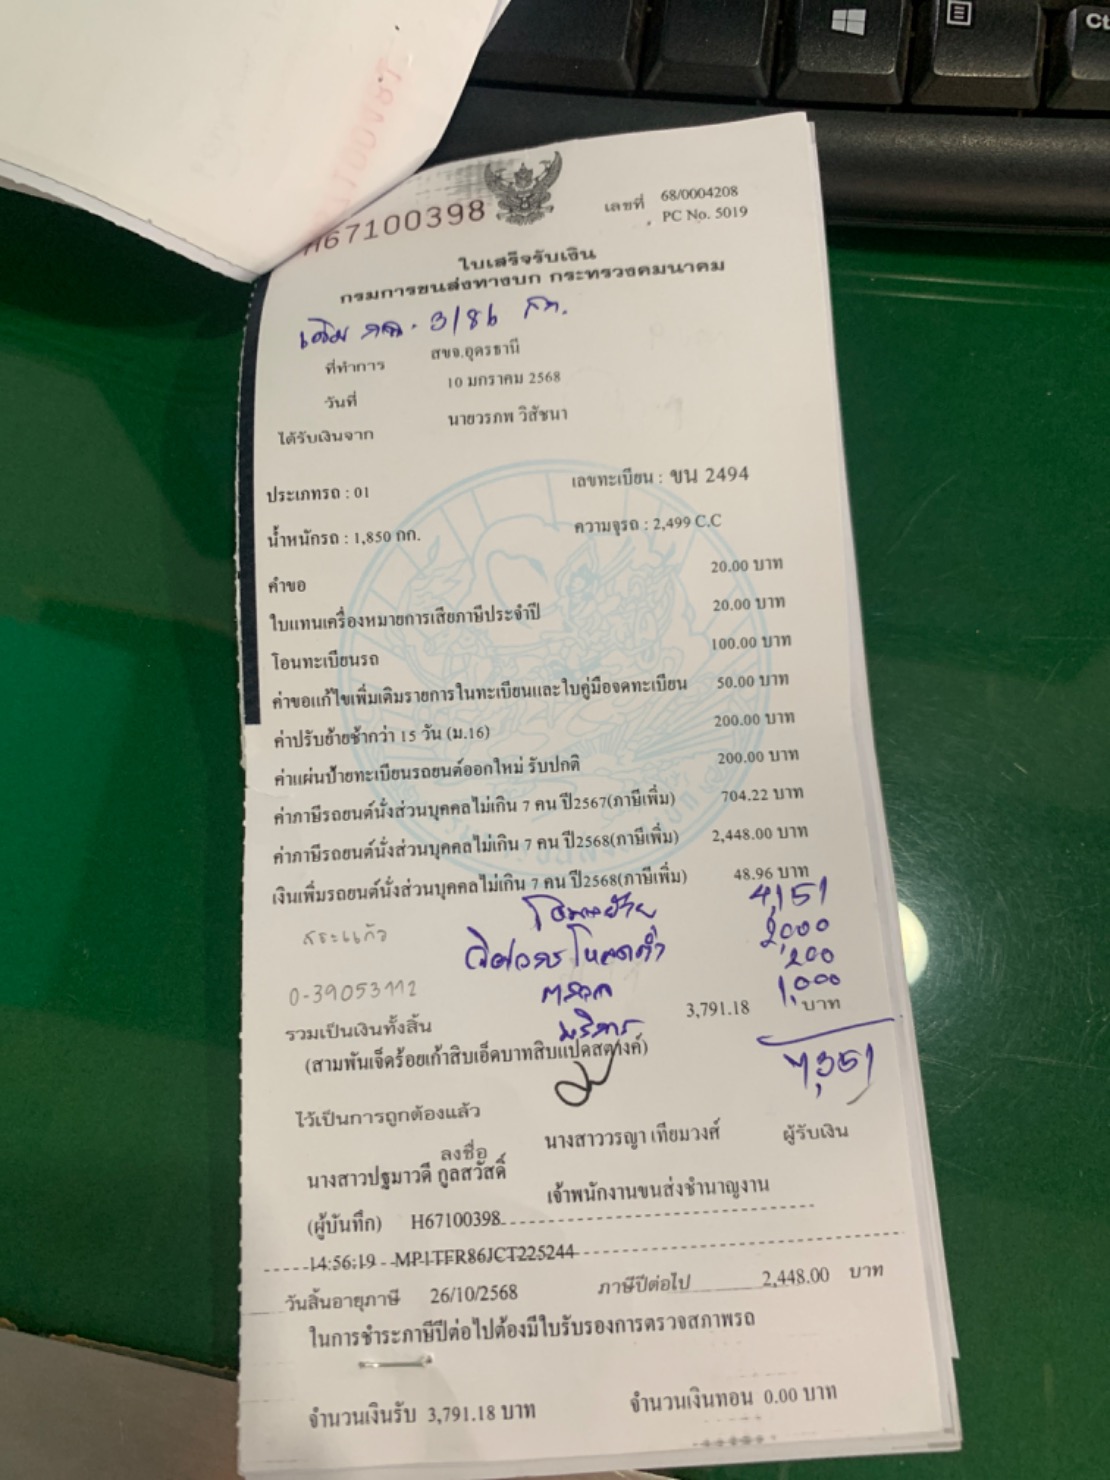 H67100398
เลขที่ 68/0004208
PC No. 5019
ใบเสร็จรับเงิน
กรมการขนส่งทางบก กระทรวงคมนาคม
3/86
ที่ทำการ สขจ.อุดรธานี
วันที่ 10 มกราคม 2568
ได้รับเงินจาก นายวรภพ วิสัชนา
ประเภทรถ : 01 เลขทะเบียน : ขน 2494
น้ำหนักรถ : 1,850 กก. ความจุรถ : 2,499 C.C
คำขอ 20.00 บาท
ใบแทนเครื่องหมายการเสียภาษีประจำปี 20.00 บาท
โอนทะเบียนรถ 100.00 บาท
ค่าขอแก้ไขเพิ่มเติมรายการในทะเบียนและใบคู่มือจดทะเบียน 50.00 บาท
ค่าปรับย้ายช้ากว่า 15 วัน (ม.16) 200.00 บาท
ค่าแผ่นป้ายทะเบียนรถยนต์ออกใหม่ รับปกติ 200.00 บาท
ค่าภาษีรถยนต์นั่งส่วนบุคคลไม่เกิน 7 คน ปี2567(ภาษีเพิ่ม) 704.22 บาท
ค่าภาษีรถยนต์นั่งส่วนบุคคลไม่เกิน 7 คน ปี2568(ภาษีเพิ่ม) 2,448.00 บาท
เงินเพิ่มรถยนต์นั่งส่วนบุคคลไม่เกิน 7 คน ปี2568(ภาษีเพิ่ม) 48.96 บาท
โอนย้าย 4,151
สระแก้ว วิศวกรโหลดต่ำ 2,000
ตรวจ 200
0-39053112 บริการ 1,000
รวมเป็นเงินทั้งสิ้น 3,791.18 บาท
(สามพันเจ็ดร้อยเก้าสิบเอ็ดบาทสิบแปดสตางค์)
7,351
ไว้เป็นการถูกต้องแล้ว
ลงชื่อ นางสาววรญา เทียมวงศ์ ผู้รับเงิน
นางสาวปฐมาวดี กูลสวัสดิ์ เจ้าพนักงานขนส่งชำนาญงาน
(ผู้บันทึก) H67100398
14:56:19 MP1TFR86JCT225244
วันสิ้นอายุภาษี 26/10/2568 ภาษีปีต่อไป 2,448.00 บาท
ในการชำระภาษีปีต่อไปต้องมีใบรับรองการตรวจสภาพรถ
จำนวนเงินรับ 3,791.18 บาท จำนวนเงินทอน 0.00 บาท